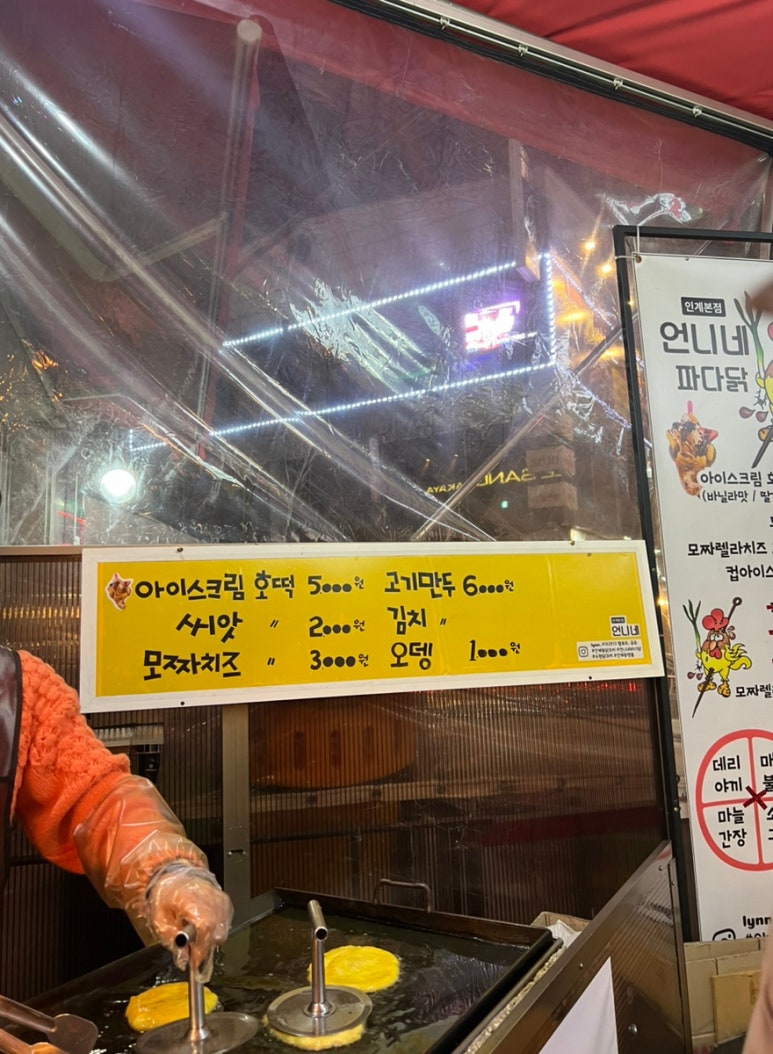 인계본점
언니네
파다닭
아이스크림 호
(바닐라맛 / 딸
모짜렐라치즈
컵아이스
모짜렐
데리
야끼
마늘
간장
lynn
아이스크림 호떡 5000원 고기만두 6000원
씨앗 〃 2000원 김치 〃
모짜치즈 〃 3000원 오뎅 1000원
언니네